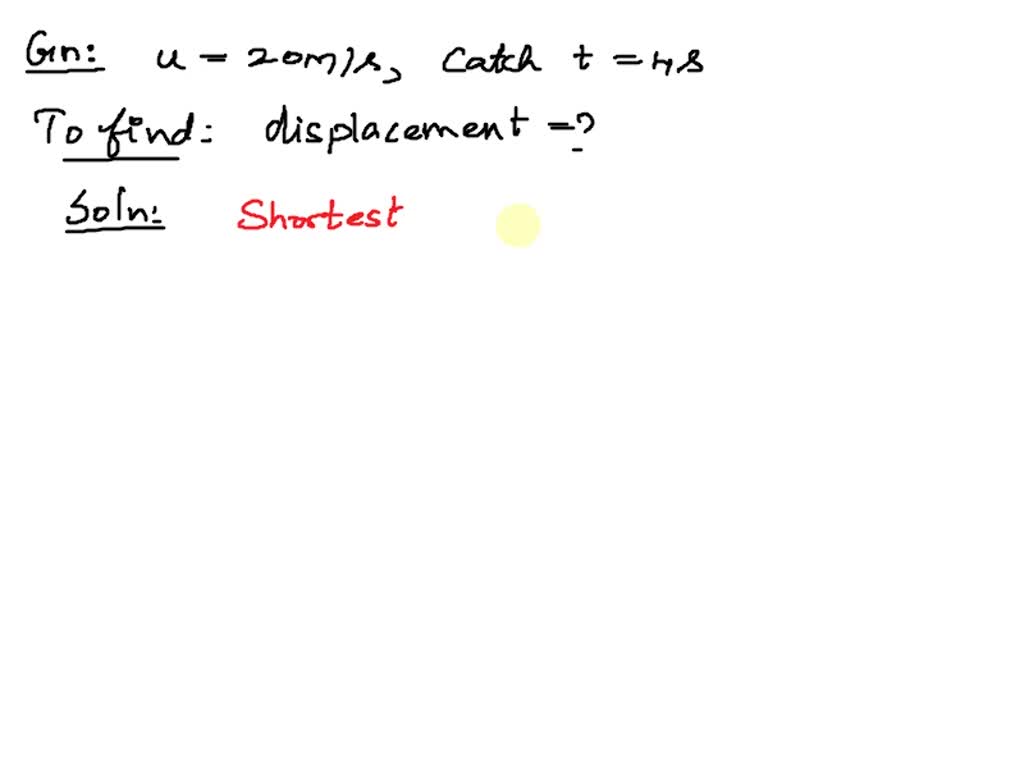 Gn: u = 20m/s, Catch t = 4s
To find: displacement = ?
Soln: Shortest